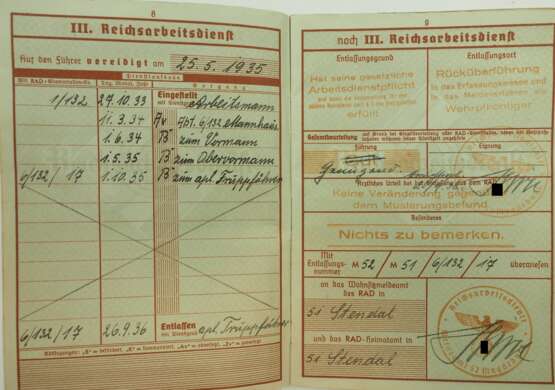 8
III. Reichsarbeitsdienst
Auf den Führer vereidigt am 25.5.1935
Dienstlaufbahn
Tag, Monat, Jahr
1/132 27.10.33 Eingestellt Arbeitsmann
11.3.34 Apt. 6/132 Mannhaus
1.6.34 "B" zum Vormann
1.5.35 "B" zum Obervormann
6/132/17 1.10.35 "B" zum apl. Truppführer
6/132/17 26.9.36 Entlassen apl. Truppführer
9
noch III. Reichsarbeitsdienst
Entlassungsgrund
Entlassungsort
Hat seine gesetzliche
Arbeitsdienstpflicht
erfüllt
Rücküberführung
in das Erfassungswesen und
in das Meldeverfahren als
Wehrpflichtiger
Gesamtbeurteilung
Führung
Eignung
Keine Veränderung gegenüber
dem Musterungsbefund
Besonderes
Nichts zu bemerken.
Mit Entlassungs-
nummer M 52 / M 51 / 6/132 / 17 überwiesen
an das Wohnsitzmeldeamt
des RAD in
51 Stendal
und das RAD-Heimatamt in
51 Stendal
Reichsarbeitsdienst